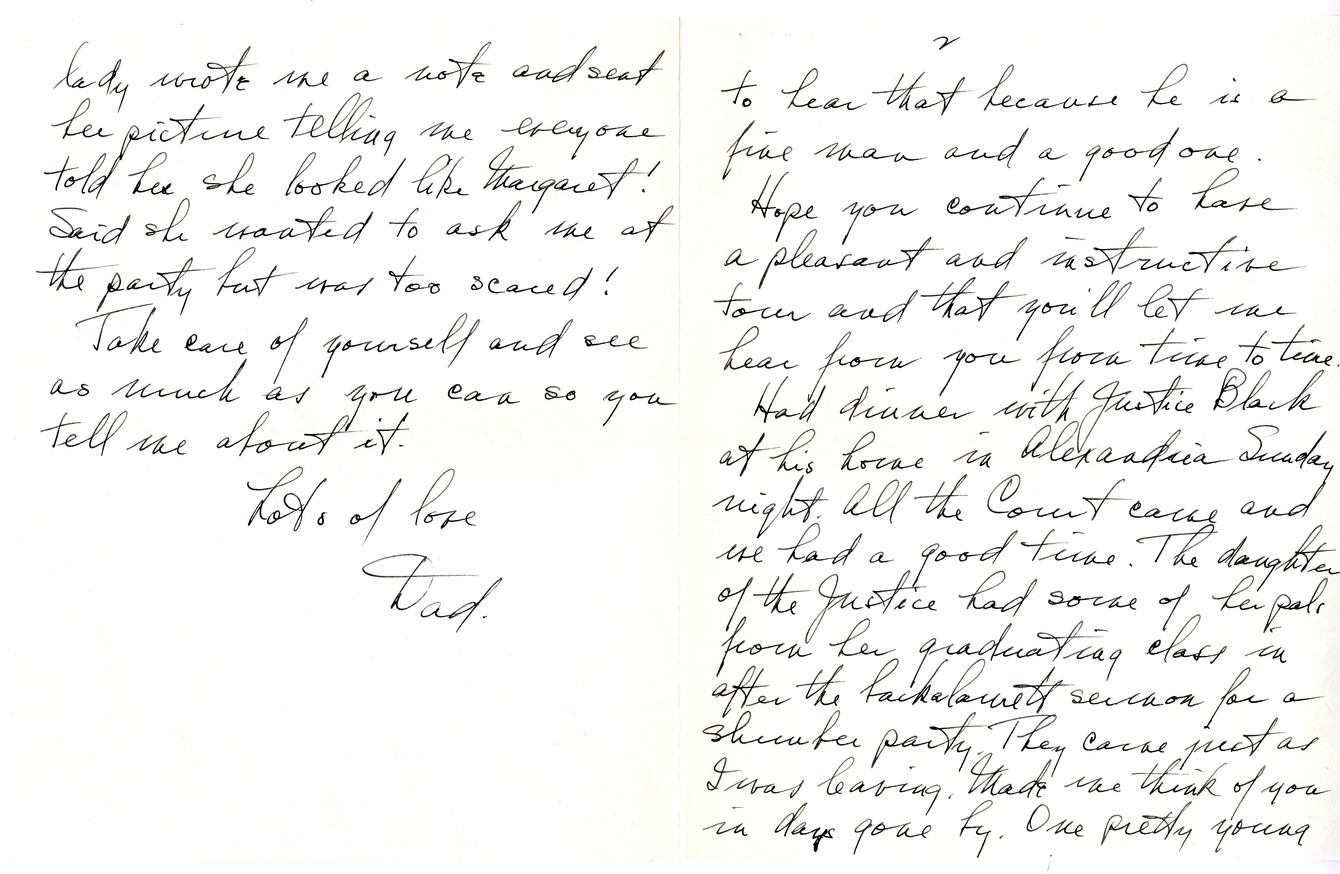 2
to hear that because he is a
fine man and a good one.
Hope you continue to have
a pleasant and instructive
tour and that you'll let me
hear from you from time to time.
Had dinner with Justice Black
at his home in Alexandria Sunday
night. All the Court came and
we had a good time. The daughter
of the Justice had some of her pals
from her graduating class in
after the backalaurett sermon for a
slumber party. They came just as
I was leaving. Made me think of you
in days gone by. One pretty young
lady wrote me a note and sent
her picture telling me everyone
told her she looked like Margaret!
Said she wanted to ask me at
the party but was too scared!
Take care of yourself and see
as much as you can so you
tell me about it.
Lots of love
Dad.